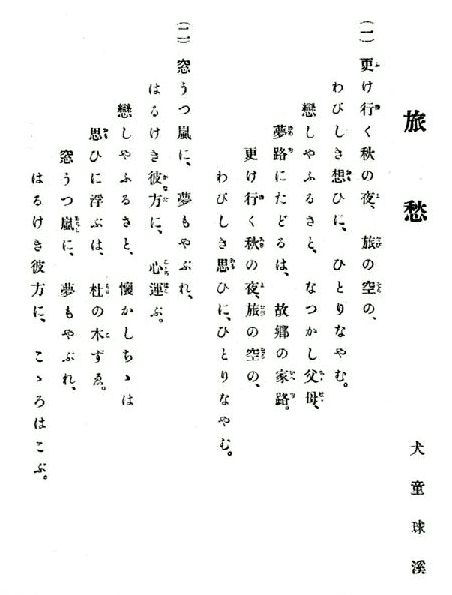 旅愁
犬童球溪
(一) 更け行く秋の夜、旅の空の、
わびしき想ひに、ひとりなやむ。
戀しやふるさと、なつかし父母、
夢路にたどるは、故鄕の家路。
更け行く秋の夜、旅の空の、
わびしき思ひに、ひとりなやむ。
(二) 窓うつ嵐に、夢もやぶれ、
はるけき彼方に、心運ぶ。
戀しやふるさと、懷かしちゝは
思ひに浮ぶは、杜の木ずゑ。
窓うつ嵐に、夢もやぶれ、
はるけき彼方に、こゝろはこぶ。